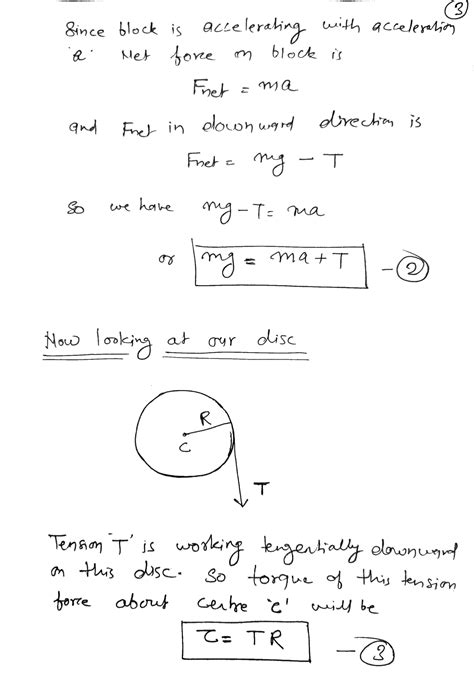 ③
Since block is accelerating with acceleration
'a'. Net force on block is
Fnet = ma
and Fnet in downward direction is
Fnet = mg - T
So we have mg-T= ma
or mg = ma+T -②
Now looking at our disc
R
C
T
Tension 'T' is working tengentially downward
on this disc. So torque of this tension
force about centre 'c' will be
τ= TR -③